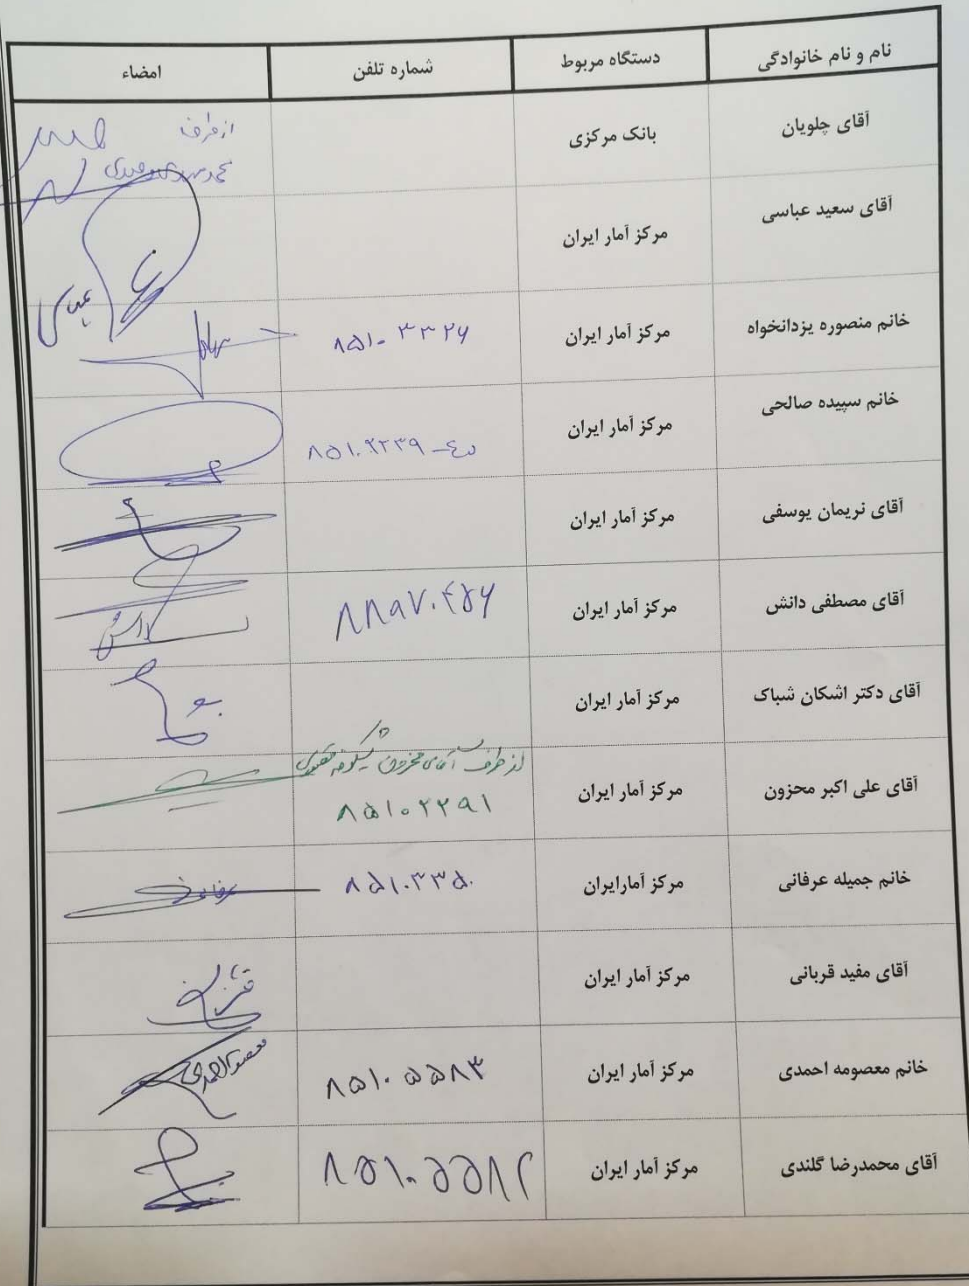 نام و نام خانوادگی دستگاه مربوط شماره تلفن امضاء
آقای چلویان بانک مرکزی از طرف
آقای سعید عباسی مرکز آمار ایران عباسی
خانم منصوره یزدانخواه مرکز آمار ایران ۸۵۱۰۳۳۲۶
خانم سپیده صالحی مرکز آمار ایران
آقای نریمان یوسفی مرکز آمار ایران
آقای مصطفی دانش مرکز آمار ایران ۸۸۹۷۰۴۵۶ دانش
آقای دکتر اشکان شباک مرکز آمار ایران
از طرف آقای محزون
آقای علی اکبر محزون مرکز آمار ایران ۸۵۱۰۲۲۹۱
خانم جمیله عرفانی مرکز آمارایران ۸۵۱۰۳۳۵۰ عرفانی
آقای مفید قربانی مرکز آمار ایران
خانم معصومه احمدی مرکز آمار ایران ۸۵۱۰۵۵۸۳ معصومه احمدی
آقای محمدرضا گلندی مرکز آمار ایران ۸۵۱۰۵۵۸۲